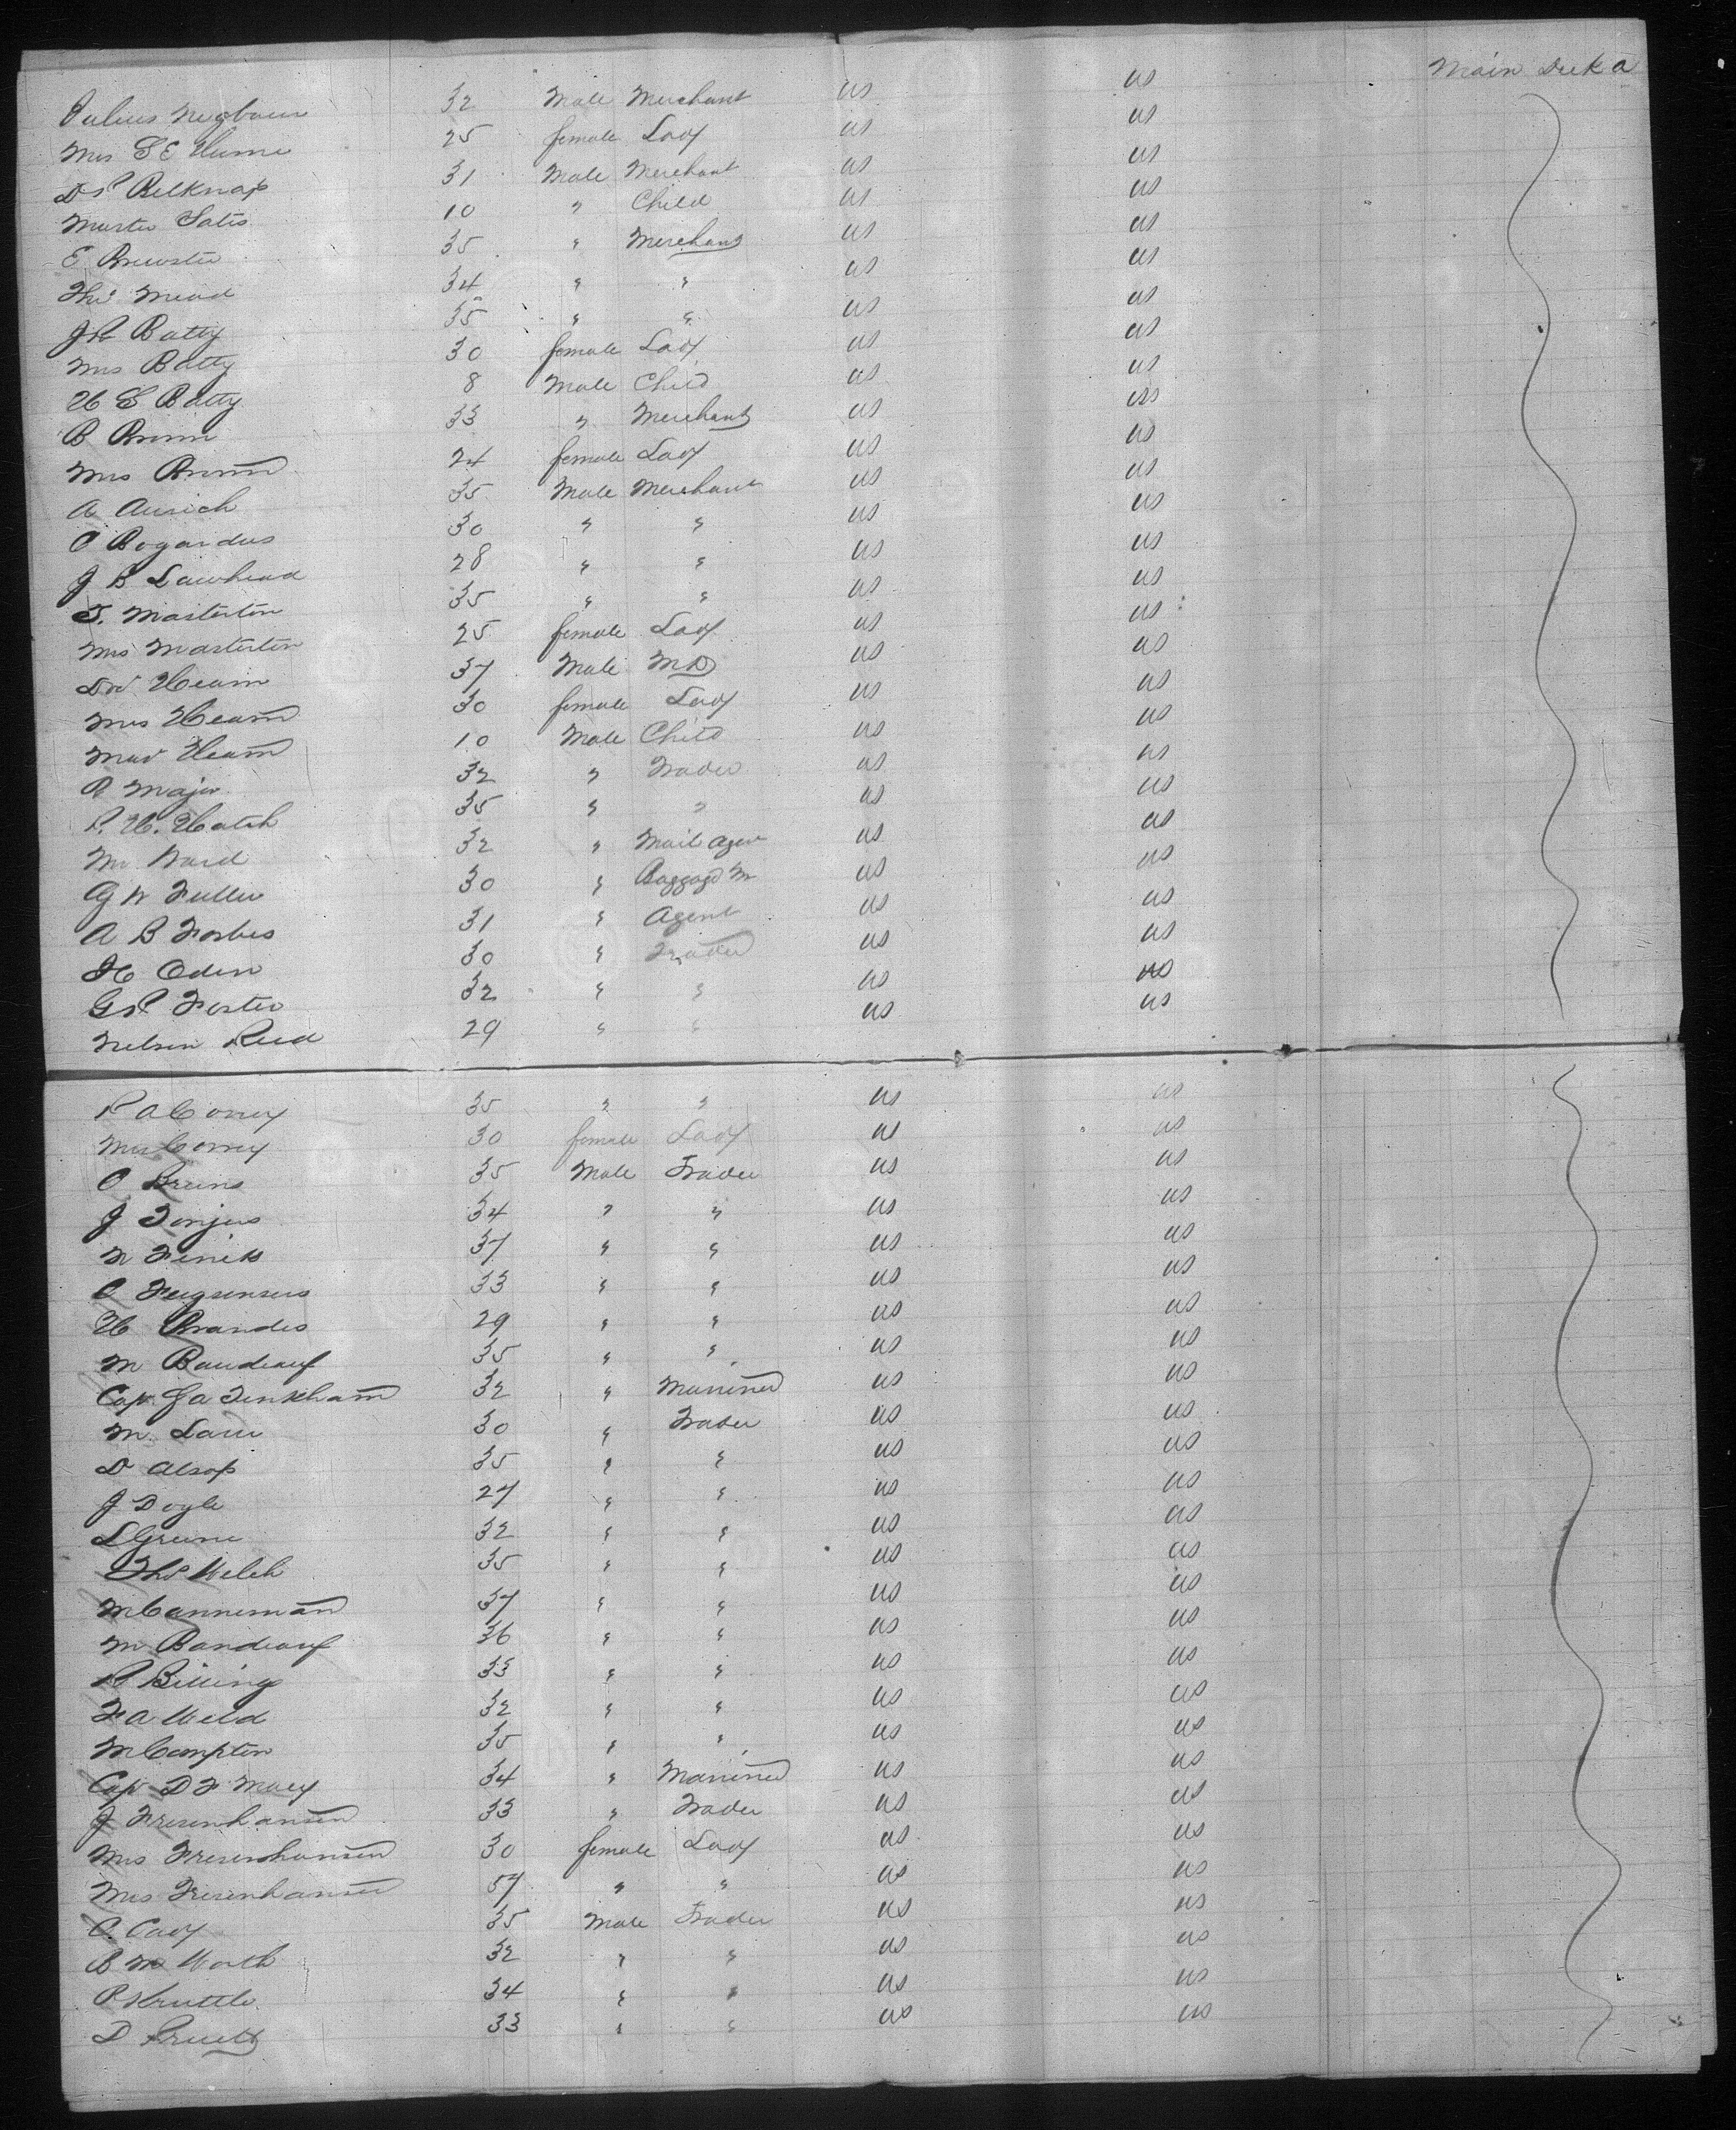 Main Deck a
Julius Negbaur 32 Male Merchant US US
Mrs S E Hume 25 female Lady US US
D P Belknap 31 Male Merchant US US
Master Sates 10 " Child US US
E Brewster 35 " Merchant US US
Thos Mead 34 " " US US
J R Batty 35 " " US US
Mrs Batty 30 female Lady US US
H S Batty 8 Male Child US US
B Brown 33 " Merchant US US
Mrs Brown 24 female Lady US US
A Aurich 35 Male Merchant US US
O Bogardus 30 " " US US
J B Lawhead 28 " " US US
T. Masterton 35 " " US US
Mrs Masterton 25 female Lady US US
Dr Hearn 37 Male MD US US
Mrs Hearn 30 female Lady US US
Mas Hearn 10 Male Child US US
R Major 32 " Trader US US
P. H. Hatch 35 " " US US
Mr Ward 32 " Mail Agen US US
G W Fuller 30 " Baggage M US US
A B Forbes 31 " Agent US US
H Oden 30 " Trader US US
G P Foster 32 " " US US
Nelson Reed 29 " " US US
P A Correy 35 " " US US
Mrs Correy 30 female Lady US US
O Bruns 35 Male Trader US US
J Tonjus 34 " " US US
37 " " US US
33 " " US US
H Brandes 29 " " US US
M Baudeauf 35 " " US US
Cap J A Tinkham 32 " Mariner US US
M. Lane 30 " Trader US US
D Alsop 35 " " US US
J Doyle 27 " " US US
L Greene 32 " " US US
Ths Welch 35 " " US US
M Canneman 37 " " US US
M Bandeauf 36 " " US US
R Billings 33 " " US US
F A Weld 32 " " US US
M Compton 35 " " US US
Cap D F Macy 34 " Mariner US US
J Fresenhansen 33 " Trader US US
Mrs Fresenhansen 30 female Lady US US
Mrs Fresenhansen 57 " " US US
C. Cady 35 Male Trader US US
B M Worth 32 " " US US
P Kruttle 34 " " US US
D Pruett 33 " " US US